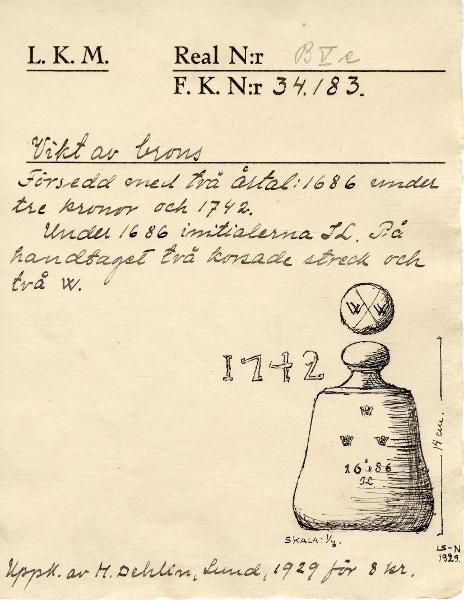 L. K. M. Real N:r B V e
F. K. N:r 34.183.
Vikt av brons
Försedd med två årtal: 1686 under
tre kronor och 1742.
Under 1686 initialerna IL. På
handtaget två korsade streck och
två W.
W W
1742
16 86
IL
14 cm.
SKALA: 1/3.
LS-N
1929.
Uppk. av H. Dehlin, Lund, 1929 för 8 kr.